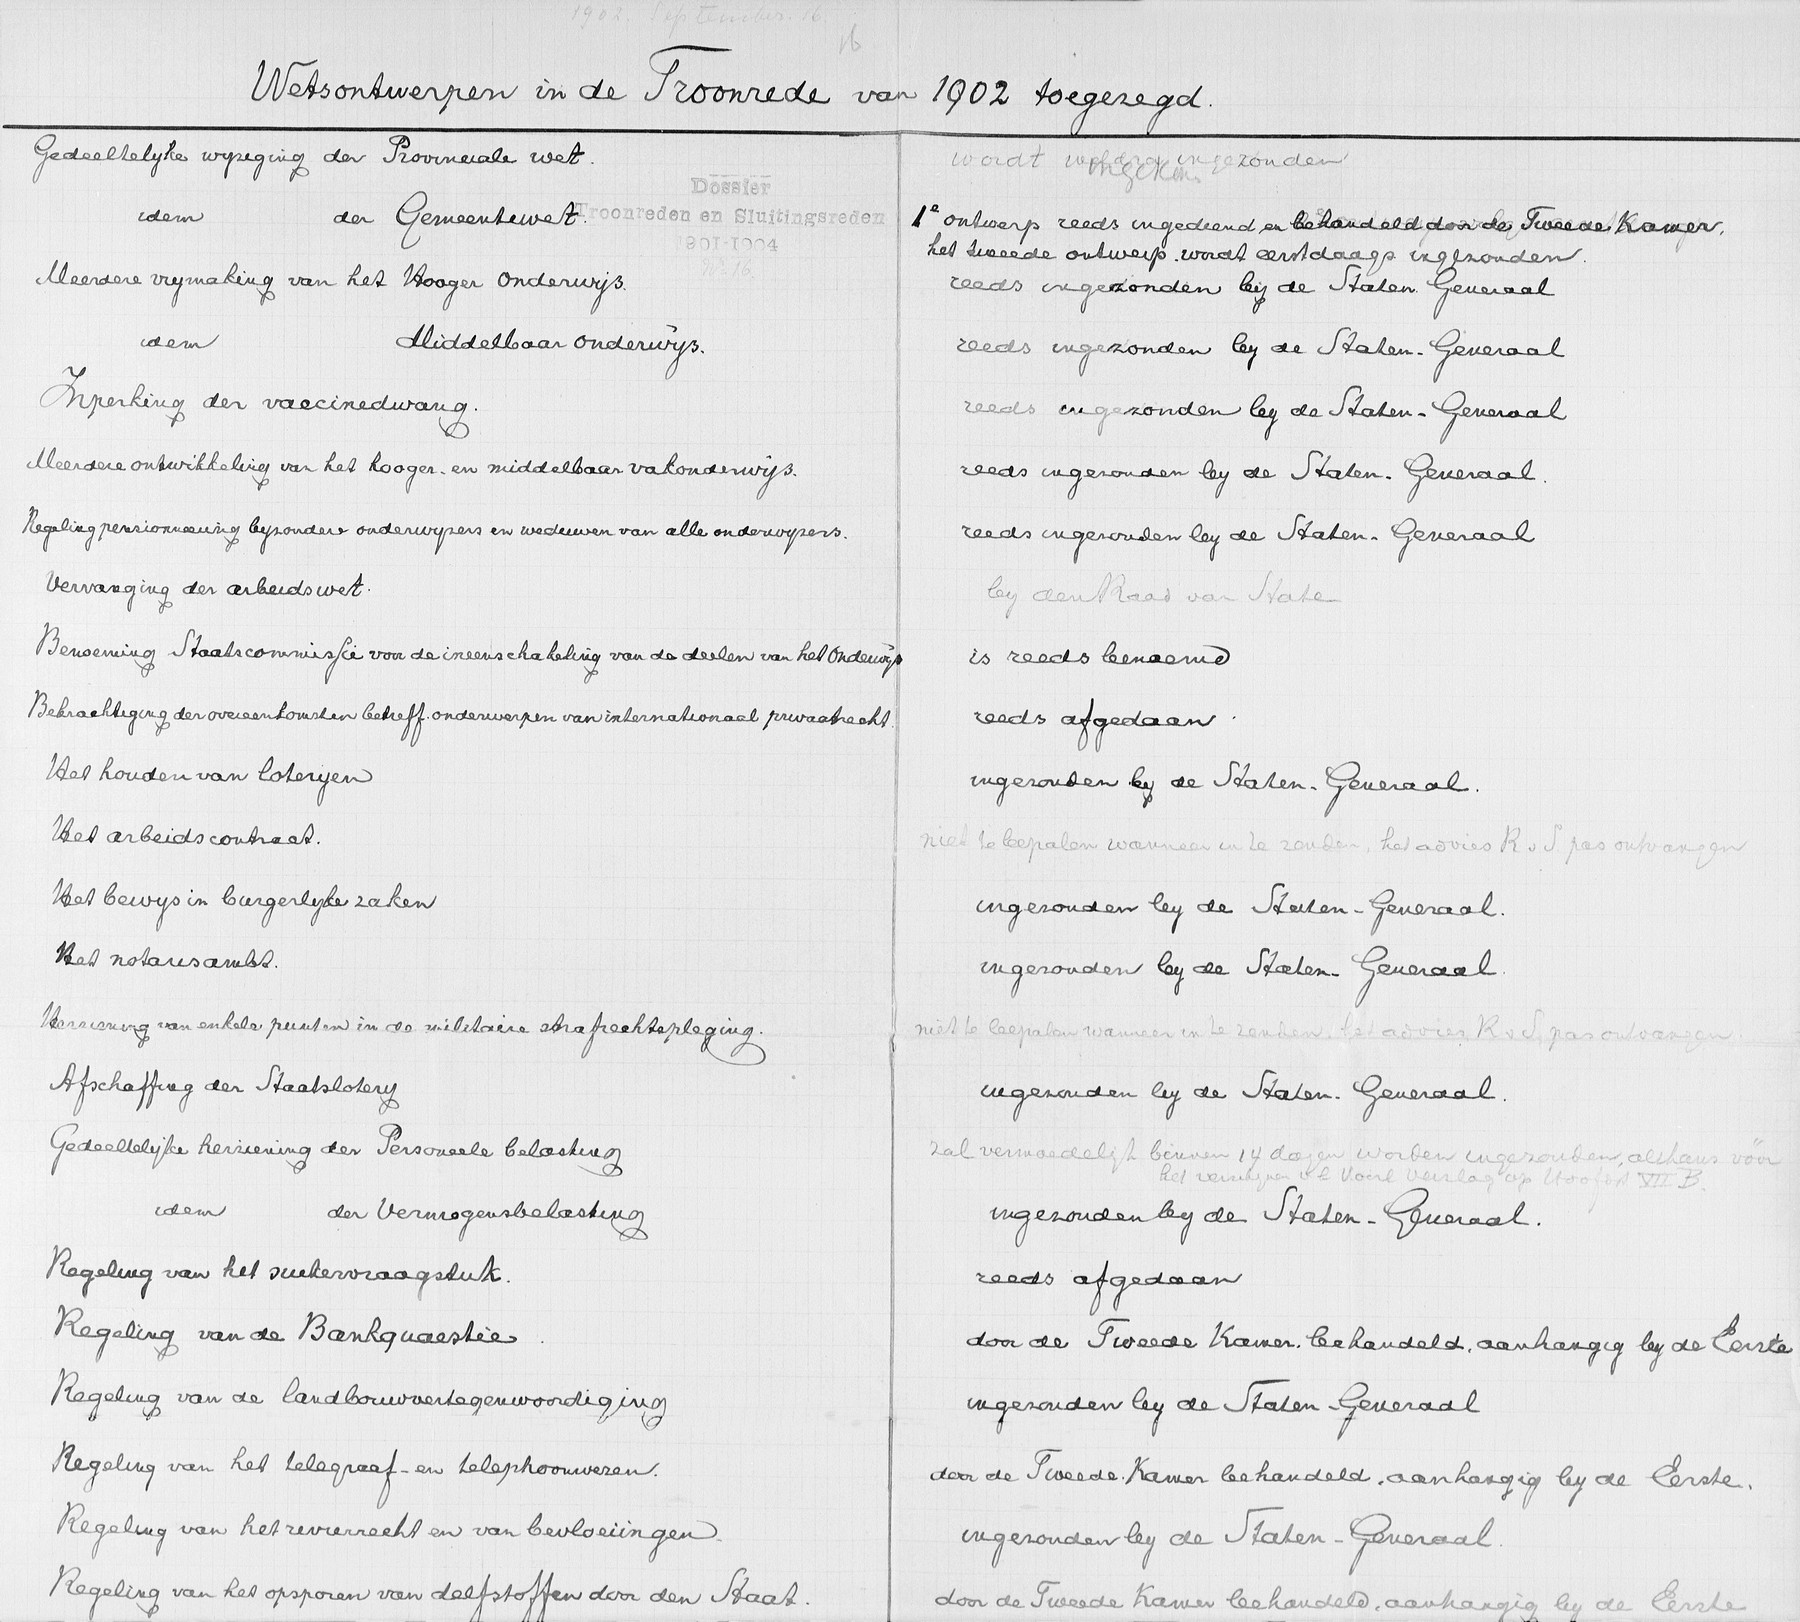 1902. September. 16.
16
Wetsontwerpen in de Troonrede van 1902 toegezegd.
Gedeeltelyke wyziging der Provinciale wet.
wordt ingezonden
Dossier
Troonreden en Sluitingsreden
1901-1904
No. 16.
idem der Gemeentewet.
1e ontwerp reeds ingediend en behandeld door de Tweede Kamer,
het tweede ontwerp wordt eerstdaags ingezonden.
Meerdere vrymaking van het Hooger Onderwijs.
reeds ingezonden by de Staten Generaal
idem Middelbaar onderwijs.
reeds ingezonden by de Staten-Generaal
Inperking der vaccinedwang.
reeds ingezonden by de Staten-Generaal
Meerdere ontwikkeling van het hooger- en middelbaar vakonderwijs.
reeds ingezonden by de Staten-Generaal.
Regeling pensionneering byzondere onderwyzers en weduwen van alle onderwyzers.
reeds ingezonden by de Staten-Generaal
Vervanging der arbeidswet.
by den Raad van State
Benoeming Staatscommissie voor de ineenschakeling van de deelen van het Onderwijs
is reeds benoemd
Bekrachtiging der overeenkomsten betreff. onderwerpen van internationaal privaatrecht.
reeds afgedaan.
Het houden van loteryen
ingezonden by de Staten-Generaal.
Het arbeidscontract.
niet te bepalen wanneer in te zenden, het advies R v S pas ontvangen
Het bewys in burgerlyke zaken
ingezonden by de Staten-Generaal.
Het notarisambt.
ingezonden by de Staten-Generaal.
Herziening van enkele punten in de militaire strafrechtspleging.
niet te bepalen wanneer in te zenden, het advies R v S, pas ontvangen.
Afschaffing der Staatslotery
ingezonden by de Staten-Generaal.
Gedeeltelijke herziening der Personeele belasting
zal vermoedelijk binnen 14 dagen worden ingezonden, althans vóór
het verschynen v h Voorl Verslag op Hoofdst VII B.
idem der Vermogensbelasting
ingezonden by de Staten-Generaal.
Regeling van het suikervraagstuk.
reeds afgedaan
Regeling van de Bankquaestie.
door de Tweede Kamer. behandeld, aanhangig by de Eerste
Regeling van de landbouwvertegenwoordiging
ingezonden by de Staten-Generaal
Regeling van het telegraaf- en telephoonwezen.
door de Tweede Kamer behandeld, aanhangig by de Eerste.
Regeling van het rivierrecht en van bevloeiingen.
ingezonden by de Staten-Generaal.
Regeling van het opsporen van delfstoffen door den Staat.
door de Tweede Kamer behandeld, aanhangig by de Eerste